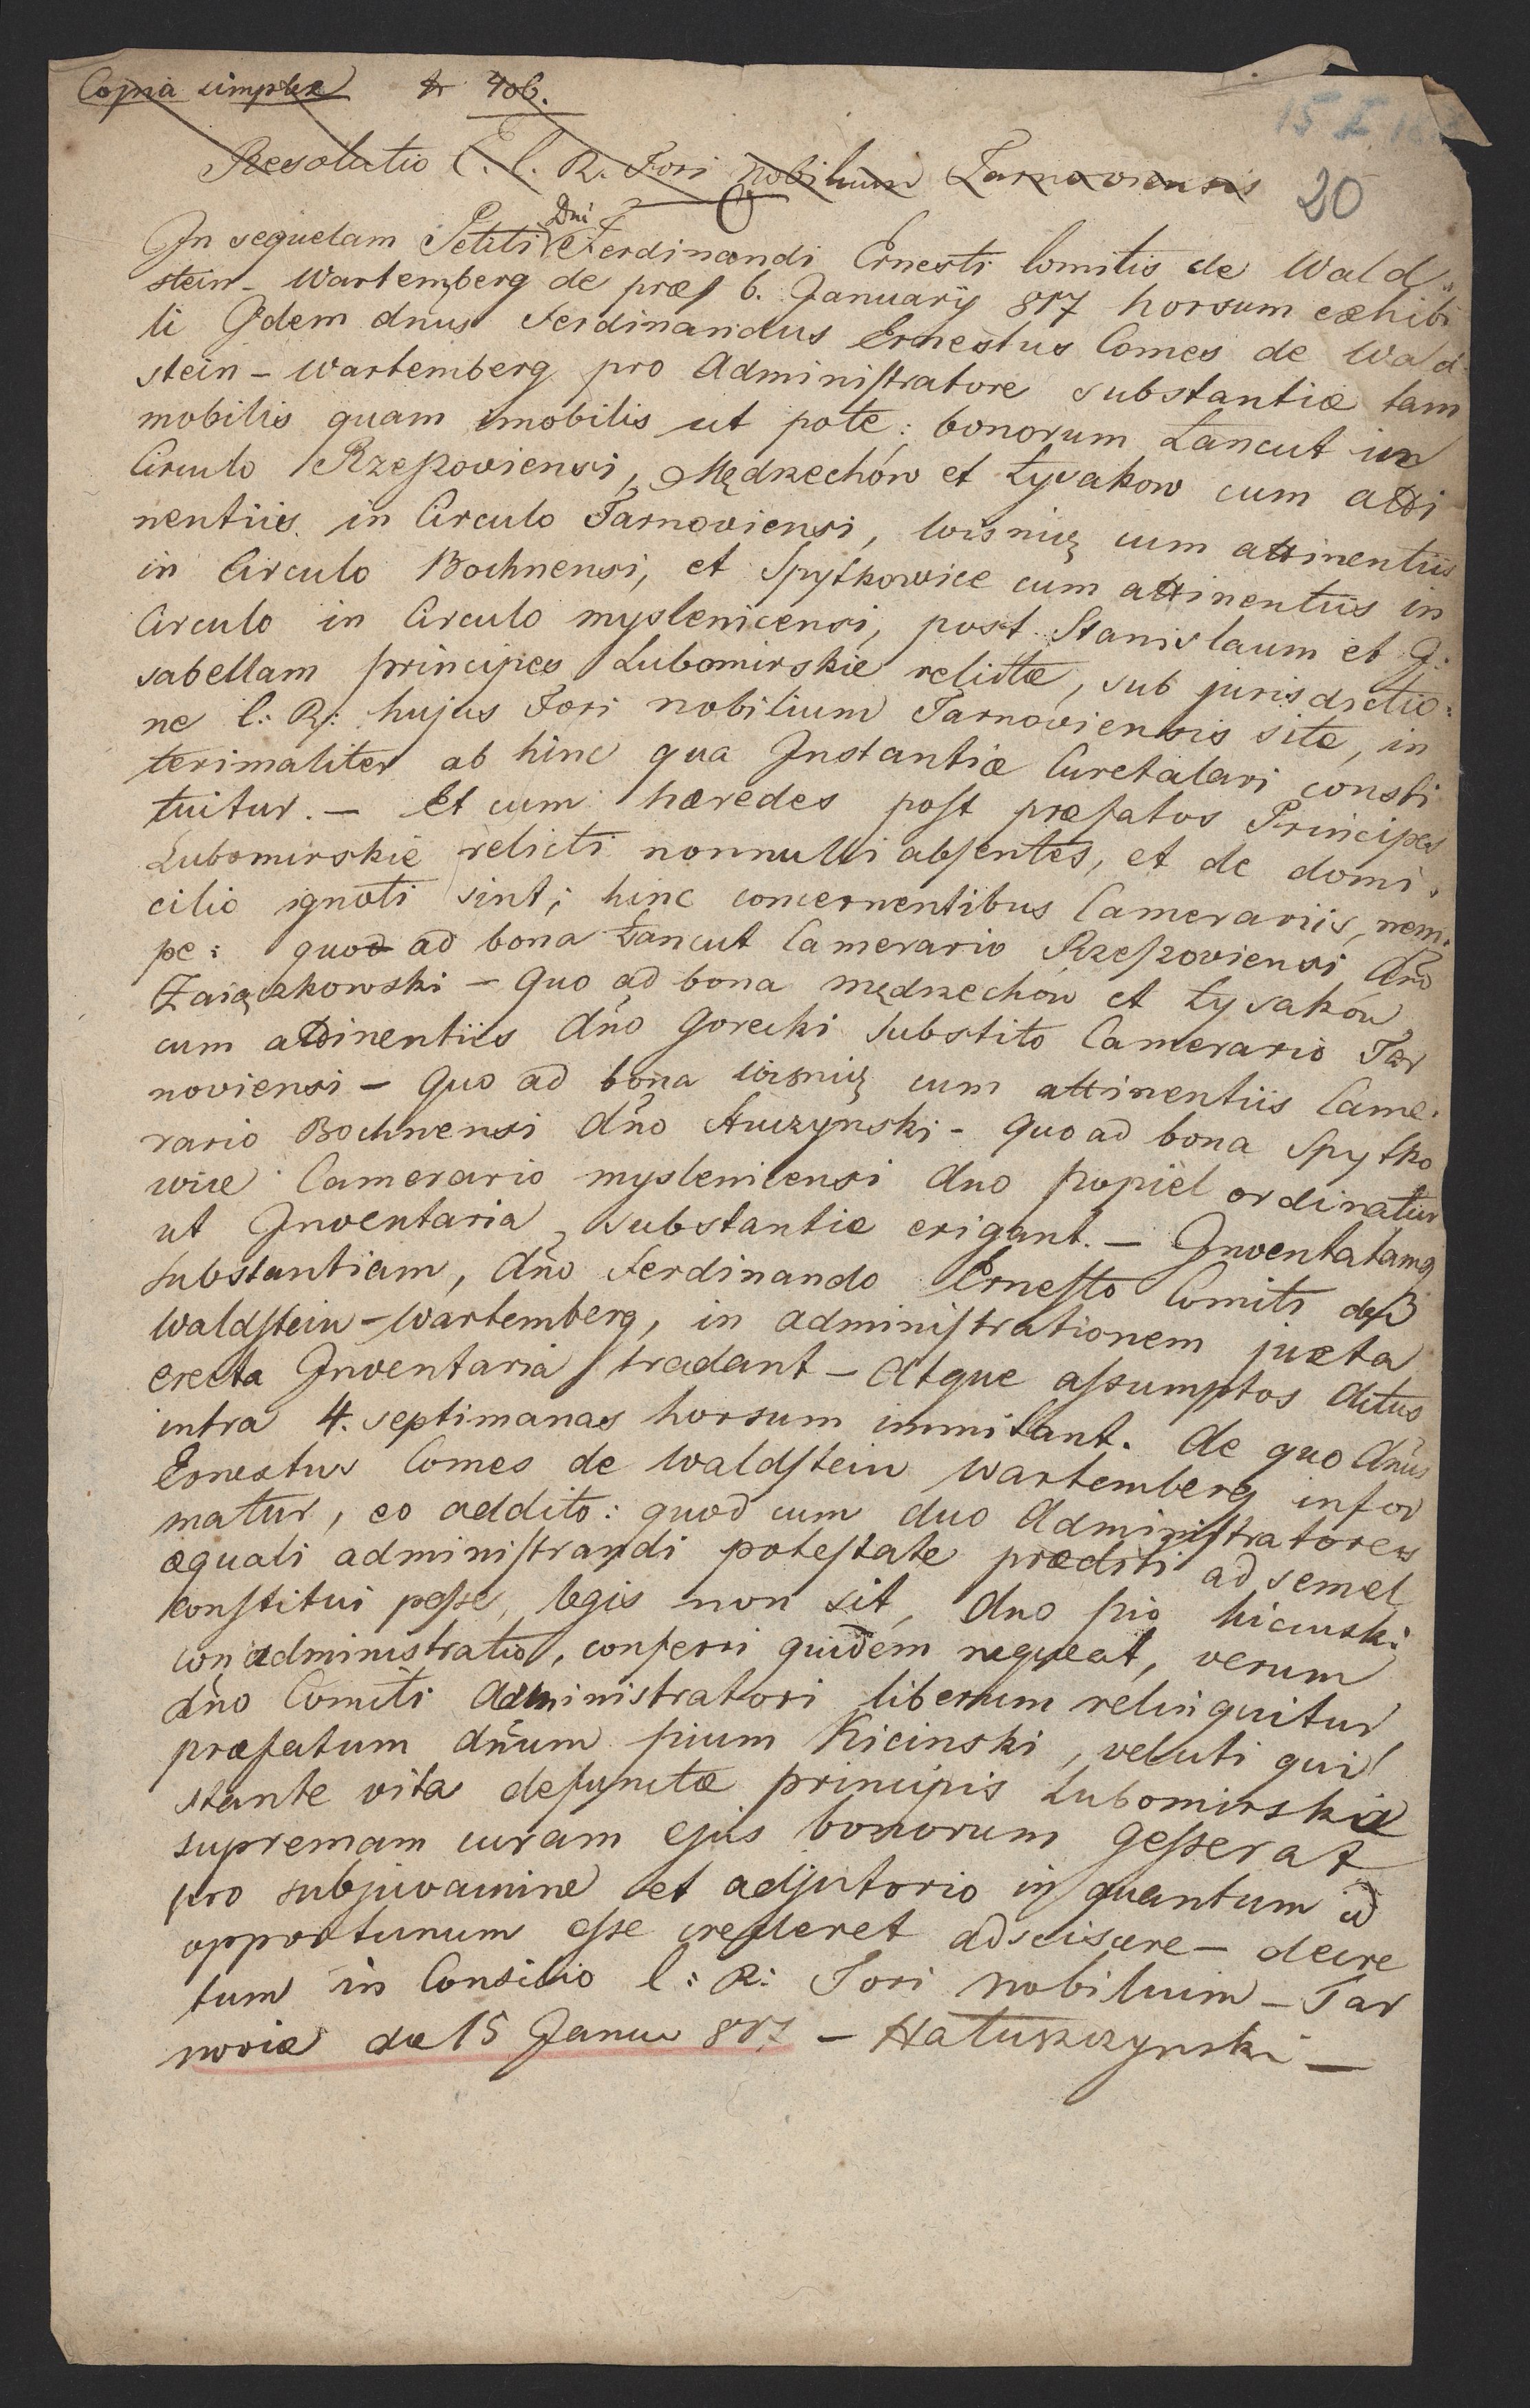 Copia simplex № 406.
15 I. 18
Resolutio C. C. R. Fori Nobilium Tarnoviensis
20
In sequelam Petiti Dni Ferdinandi Ernesti Comitis de Wald„
stein-Wartemberg de præs 6. Januarÿ 817 horsum exhibi
ti Idem dnus Ferdinandus Ernestus Comes de Wald„
stein-Wartemberg pro Administratore substantiæ tam
mobilis quam imobilis ut pote: bonorum Łancut in
Circulo Rzeszoviensi, Mędrzechów et Łysakow cum atti
nentiis in Circulo Tarnoviensi, Wisnicz cum attinentiis
in Circulo Bochnensi, et Spytkowice cum attinentiis in
Circulo in Circulo myslenicensi, post Stanislaum et I:
sabellam principes Lubomirskie relictæ, sub jurisdictio:
ne C: R: hujus Fori nobilium Tarnoviensis sitæ, in
terimaliter ab hinc qua Instantiæ Curatelari consti
tuitur. — Et cum hæredes post præfatos Principes
Lubomirskie relicti nonnulli absentes, et de domi:
cilio ignoti sint; hinc concernentibus Camerariis, nem:
pe: quod ad bona Łancut Camerario Rzeszoviensi dño
Zaiączkowski — Quo ad bona mędrzechów et Łysaków
cum attinentiis dño Gorecki substito Camerario Tar
noviensi — Quo ad bona Wisnicz cum attinentiis Came:
rario Bochnensi dño Auczynski - Quo ad bona Spytko
wice Camerario myslenicensi dno Popiel ordinatur
ut Inventaria substantiæ erigant. — Inventatamq
substantiam, dño Ferdinando Ernesto Comiti de
Waldstein-Wartemberg, in administrationem juxta
erecta Inventaria tradant — Atque assumptos Actus
intra 4. septimanas horsum immitant. de quo dñus
Ernestus Comes de Waldstein Wartemberg infor
matur, eo addito: quod cum duo Administratores
æquali administrandi potestate præditi ad semel
constitui posse, legis non sit, dno Pio Kicinski
conadministratio, conferri quidem nequeat, verum
dño Comiti Administratori liberum relinquitur,
præfatum dñum Pium Kicinski, veluti qui
stante vita defunctæ principis Lubomirskiæ
supremam curam ejus bonorum gesserat
pro subjuvamine et adjutorio in quantum id
opportunum esse crederet adsciscere — decre
tum in Consilio C: R: Fori nobilium — Tar
noviæ da 15 Janua 817 — Hałuszczynski —